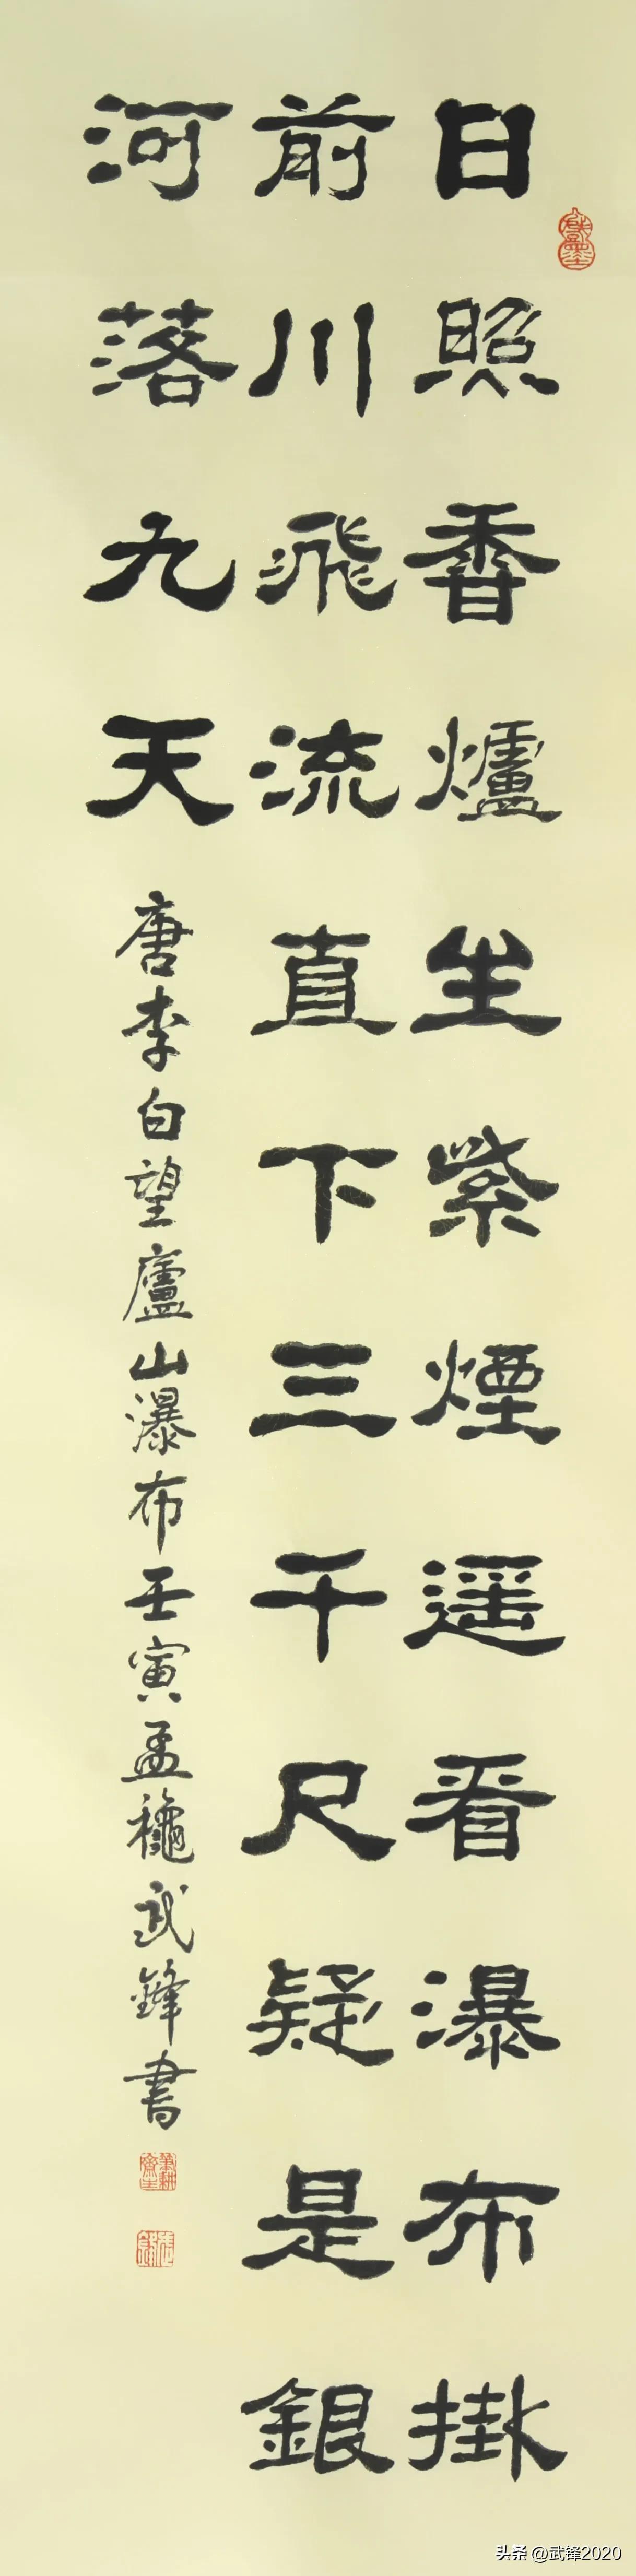 日照香爐生紫煙遥看瀑布掛
前川飛流直下三千尺疑是銀
河落九天
唐李白望廬山瀑布壬寅孟龝武鋒書
头条 @武锋2020